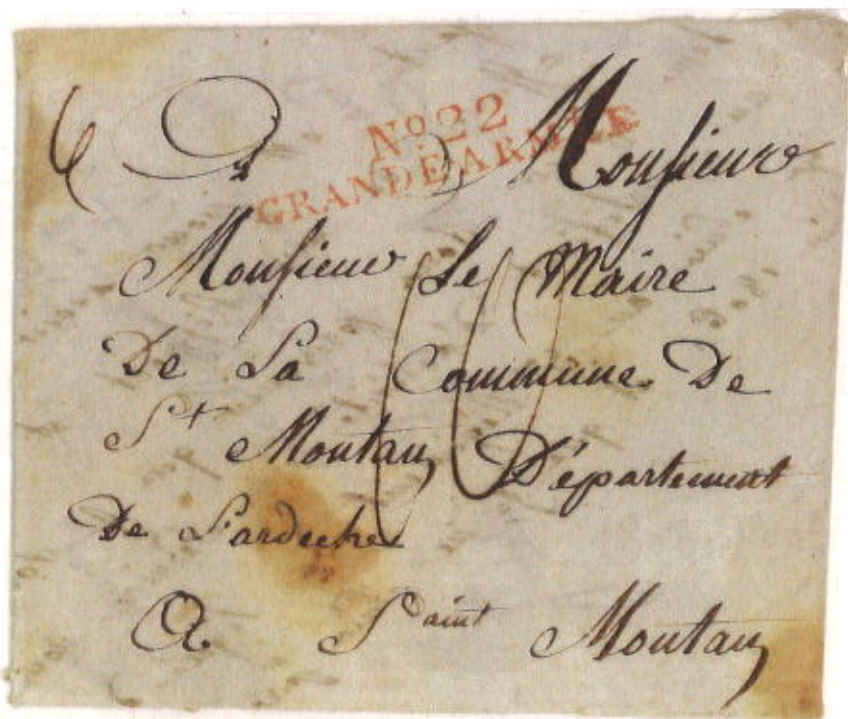 No 22
GRANDE ARMÉE
A Monsieur
Monsieur Le Maire
De La Commune De
St Montan Département
De L'ardeche
A Saint Montan